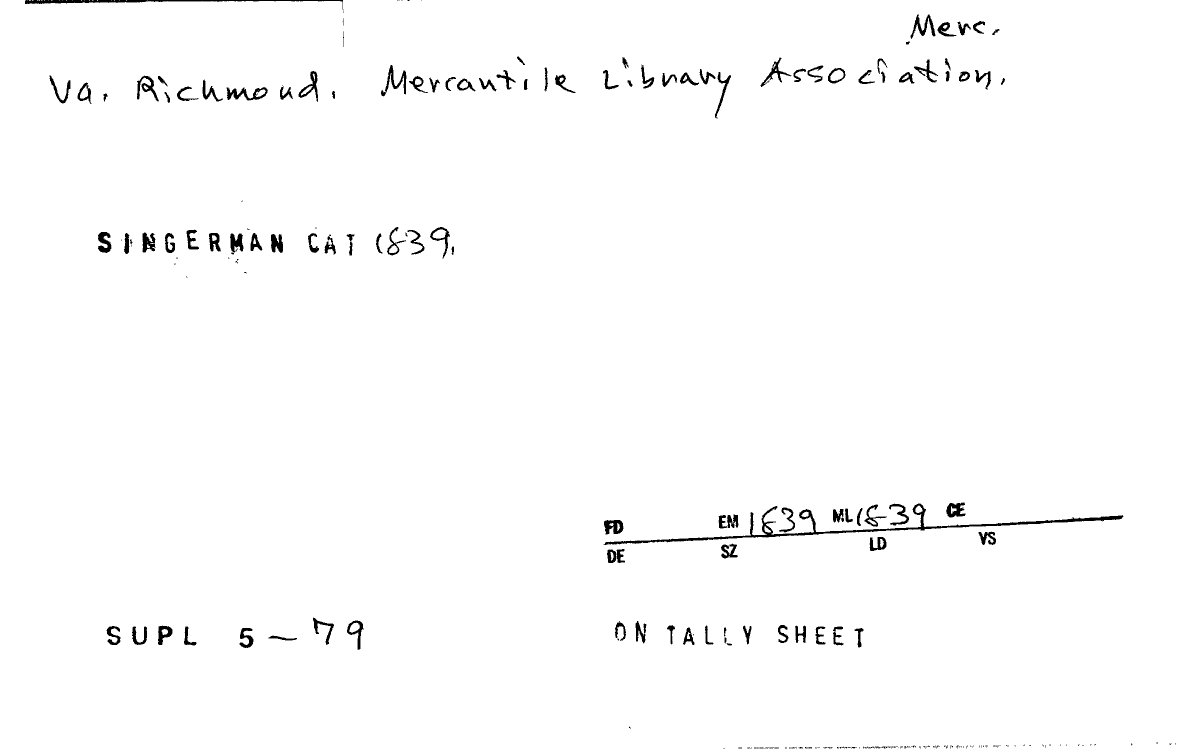 Merc.
Va. Richmond. Mercantile Library Association.
SINGERMAN CAT 1839.
FD EM 1839 ML 1839 CE
DE SZ LD VS
SUPL 5-79
ON TALLY SHEET